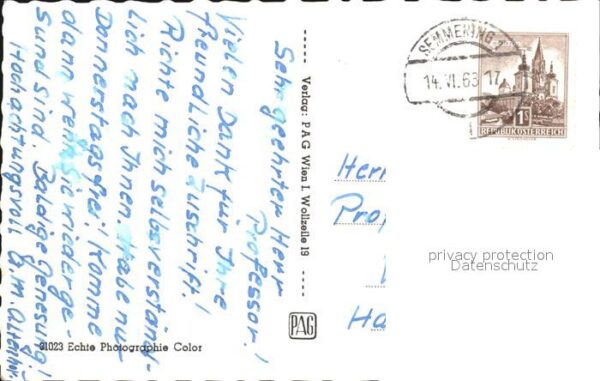 Sehr geehrter Herr
Professor!
Vielen Dank für Ihre
freundliche Zuschrift!
Richte mich selbverständ-
lich nach Ihnen. Habe nur
Donnerstags frei! Komme
dann wenn Sie wieder ge-
sund sind. Baldige Genesung!
Hochachtungsvoll
Verlag: PAG Wien I, Wollzeile 19
PAG
91023 Echte Photographie Color
SEMMERING 1
14. VI. 63 17
1S
REPUBLIK ÖSTERREICH
Herr
Prof
privacy protection
Datenschutz
Ha